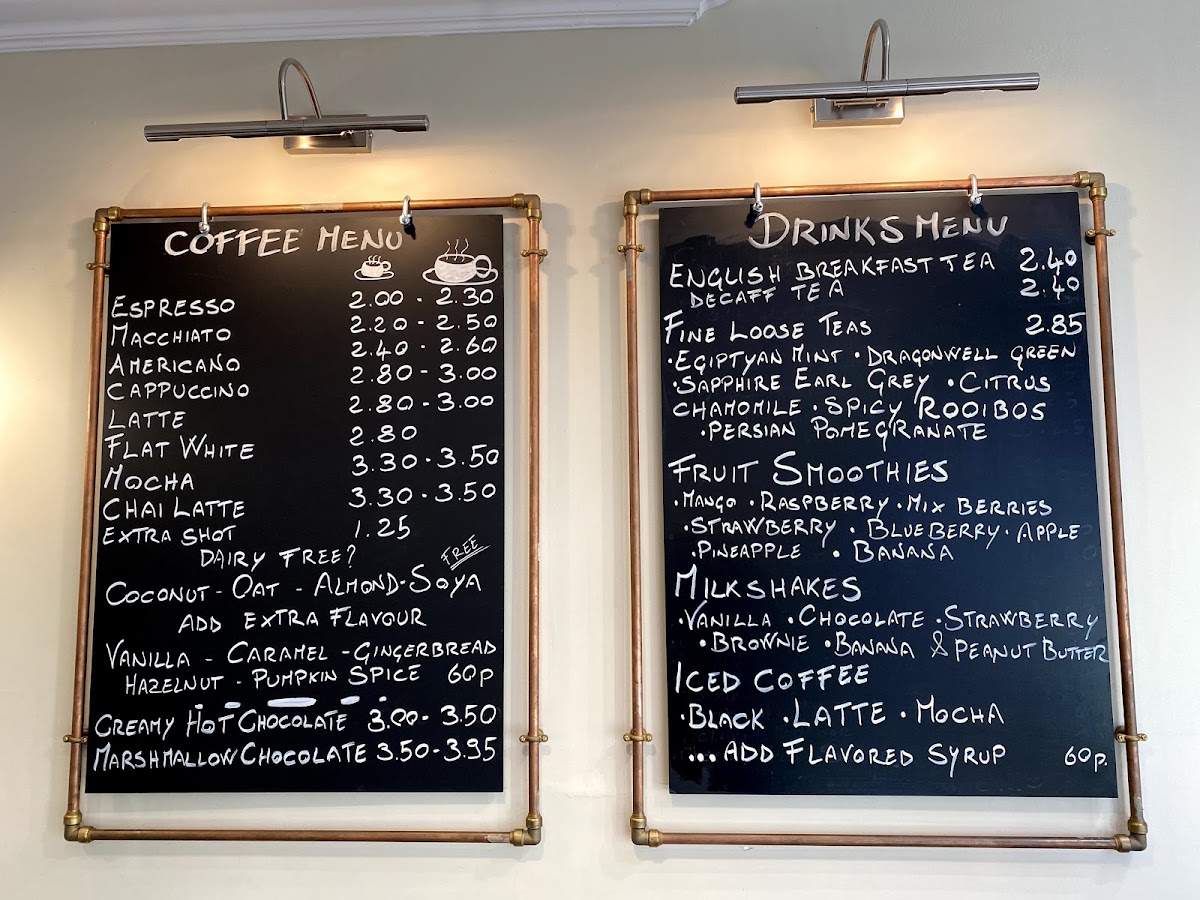 COFFEE MENU
ESPRESSO 2.00 - 2.30
MACCHIATO 2.20 - 2.50
AMERICANO 2.40 - 2.60
CAPPUCCINO 2.80 - 3.00
LATTE 2.80 - 3.00
FLAT WHITE 2.80
MOCHA 3.30 - 3.50
CHAI LATTE 3.30 - 3.50
EXTRA SHOT 1.25
DAIRY FREE? FREE
COCONUT - OAT - ALMOND - SOYA
ADD EXTRA FLAVOUR
VANILLA - CARAMEL - GINGERBREAD
HAZELNUT - PUMPKIN SPICE 60p
CREAMY HOT CHOCOLATE 3.00 - 3.50
MARSHMALLOW CHOCOLATE 3.50 - 3.95
DRINKS MENU
ENGLISH BREAKFAST TEA 2.40
DECAFF TEA 2.40
FINE LOOSE TEAS 2.85
• EGIPTYAN MINT • DRAGONWELL GREEN
• SAPPHIRE EARL GREY • CITRUS
CHAMOMILE • SPICY ROOIBOS
• PERSIAN POMEGRANATE
FRUIT SMOOTHIES
• MANGO • RASPBERRY • MIX BERRIES
• STRAWBERRY • BLUEBERRY • APPLE
• PINEAPPLE • BANANA
MILKSHAKES
• VANILLA • CHOCOLATE • STRAWBERRY
• BROWNIE • BANANA & PEANUT BUTTER
ICED COFFEE
• BLACK • LATTE • MOCHA
... ADD FLAVORED SYRUP 60p.